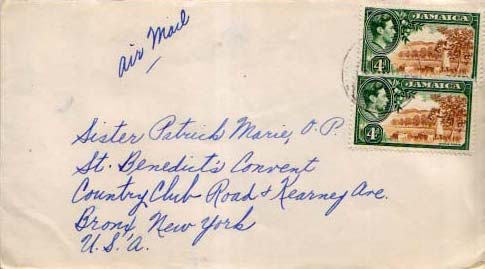 Air Mail
JAMAICA
4d
JAMAICA
4d
Sister Patrick Marie, O.P.
St. Benedict's Convent
Country Club Road & Kearney Ave.
Bronx, New York
U.S.A.